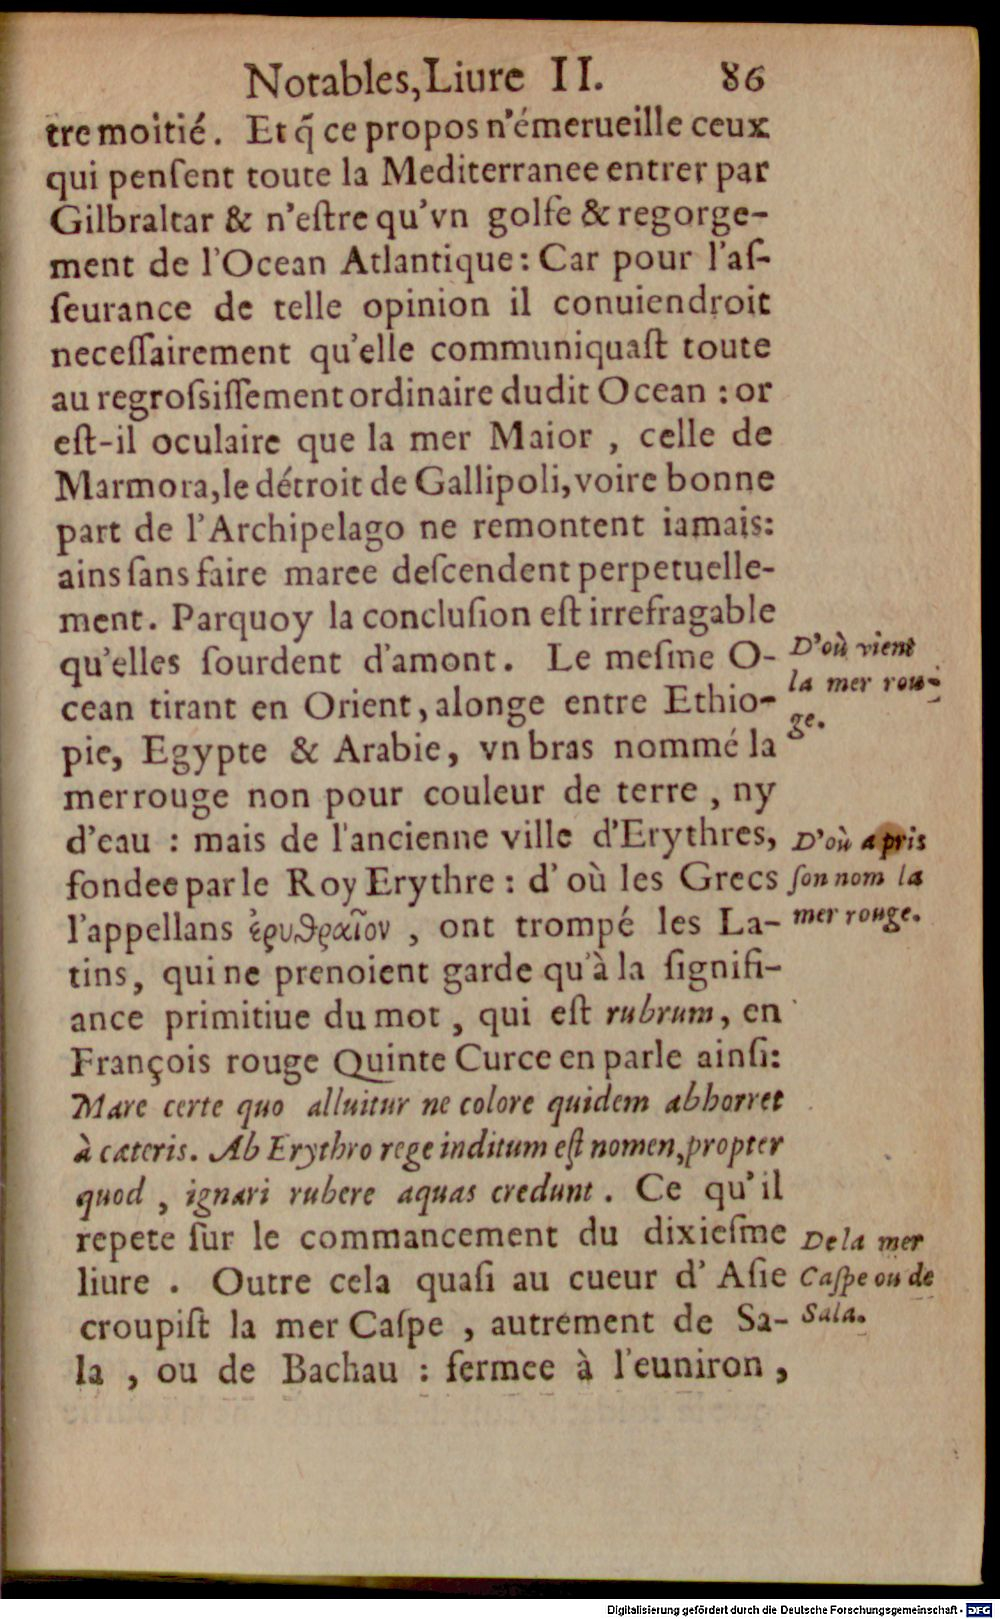 Notables, Liure II. 86
tre moitié. Et q̃ ce propos n'émerueille ceux
qui penſent toute la Mediterranee entrer par
Gilbraltar & n'eſtre qu'vn golfe & regorge-
ment de l'Ocean Atlantique: Car pour l'aſ-
ſeurance de telle opinion il conuiendroit
neceſſairement qu'elle communiquaſt toute
au regroſsiſſement ordinaire dudit Ocean : or
eſt-il oculaire que la mer Maior , celle de
Marmora, le détroit de Gallipoli, voire bonne
part de l'Archipelago ne remontent iamais:
ains ſans faire maree deſcendent perpetuelle-
ment. Parquoy la concluſion eſt irrefragable
qu'elles ſourdent d'amont. Le meſme O-
cean tirant en Orient, alonge entre Ethio-
pie, Egypte & Arabie, vn bras nommé la
mer rouge non pour couleur de terre , ny
d'eau : mais de l'ancienne ville d'Erythres,
fondee par le Roy Erythre : d' où les Grecs
l'appellans ἐρυθραῖον , ont trompé les La-
tins, qui ne prenoient garde qu'à la ſignifi-
ance primitiue du mot, qui eſt rubrum, en
François rouge Quinte Curce en parle ainſi:
Mare certe quo alluitur ne colore quidem abhorret
à cæteris. Ab Erythro rege inditum eſt nomen, propter
quod , ignari rubere aquas credunt. Ce qu'il
repete ſur le commancement du dixieſme
liure . Outre cela quaſi au cueur d' Aſie
croupiſt la mer Caſpe , autrement de Sa-
la , ou de Bachau : fermee à l'euniron ,
D'où vient
la mer rou-
ge.
D'où a pris
ſon nom la
mer rouge.
De la mer
Caſpe ou de
Sala.
Digitalisierung gefördert durch die Deutsche Forschungsgemeinschaft - DFG